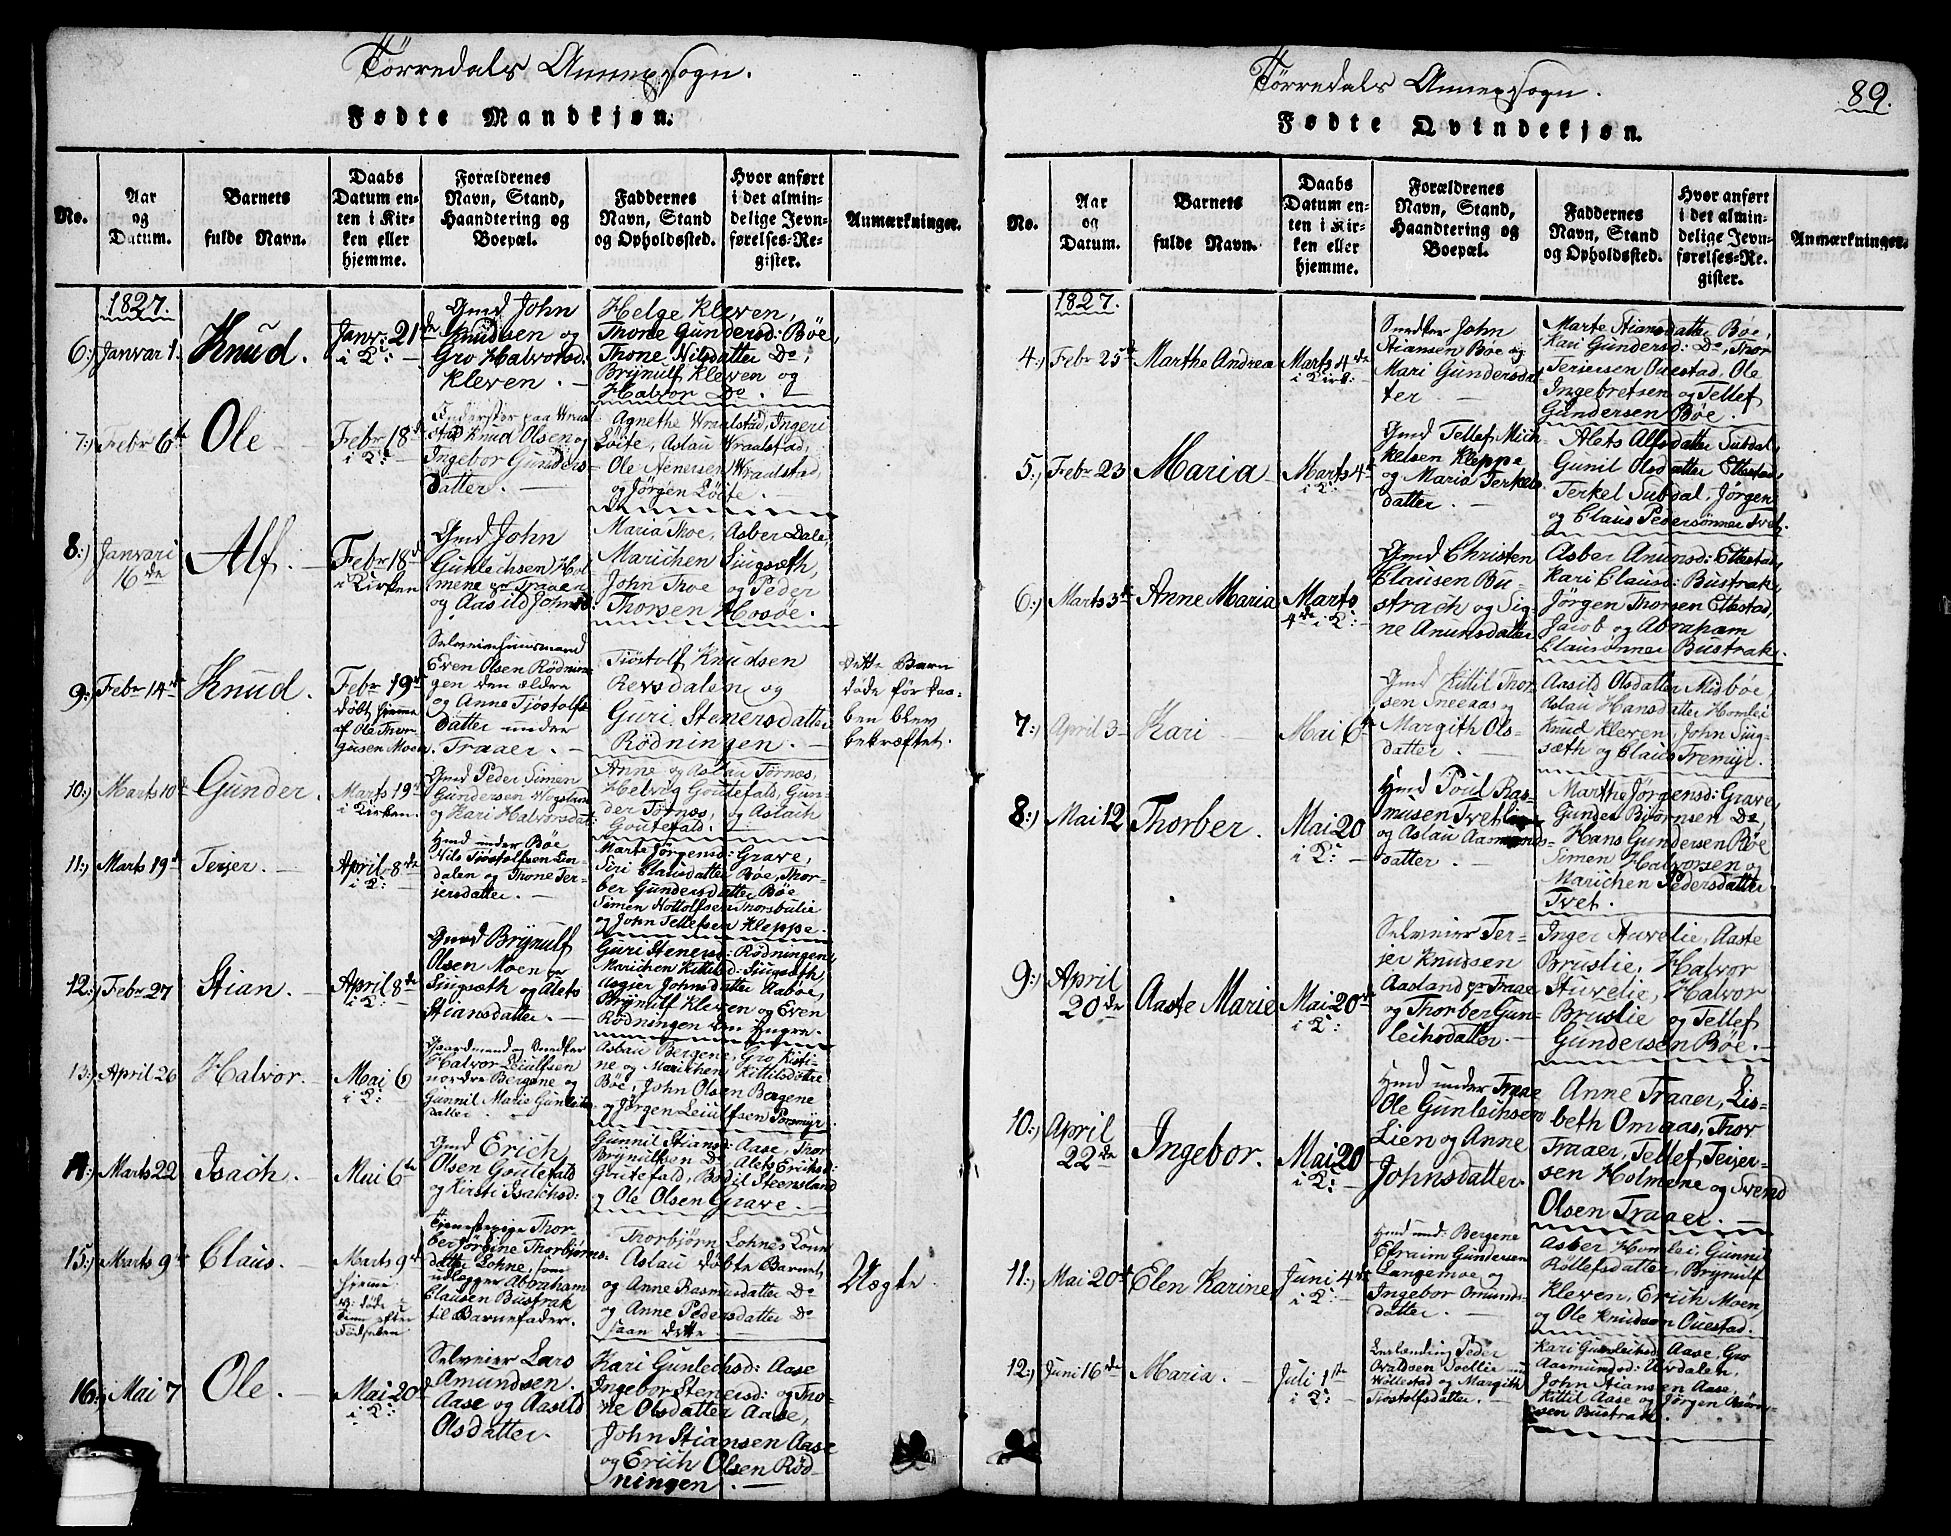 Törredals Annexsogn.
Fødte Mandkjøn.
No.
Aar
og
Datum.
Barnets
fulde Navn.
Daabs
Datum en-
ten i Kir-
ken eller
hjemme.
Forældrenes
Navn, Stand,
Haandtering og
Boepæl.
Faddernes
Navn, Stand
og Opholdssted.
Hvor anført
i det almin-
delige Jevn-
førelses-Re-
gister.
Anmærkninger.
1827.
6:) Janvar 1.
Knud.
Janv: 21de
i K:
Gmd John
Knudsen og
Gro Halvorsd:
Kleven.
Helge Kleven,
Thone Gundersd: Böe,
Thone Nilsdatter Do
Brynulf Kleven og
Halvor Do.
7:) Febr 6te
Ole
Febr 18de
i K:
Inderster paa Wraal-
stad Knud Olsen og
Ingebor Gunders-
datter.
Agnethe Wraalstad, Ingeri
Löite, Aslau Wraalstad,
Ole Nenersen Wraalstad,
og Jörgen Löite.
8:) Janvari
16de
Alf.
Febr 18de
i Kirken
Gmd John
Gunlechsen Hol-
mene pr Traaer
og Aasild Johnsd:
Maria Thoe, Asber Dale,
Marichen Siugsæth,
John Thoe og Peder
Thorsen Hosöe.
9:) Febr 14de
Knud.
Febr 19de
döbt hjeme
af Ole Thor-
gusen Moen.
Selveierhuusmand
Even Olsen Rödnin-
gen den ældre
og Anne Tiöstolfs-
datter under
Traaer.
Tiöstolf Knudsen
Revsdalen og
Guri Stenersdatter
Rödningen.
Dette Barn
döde för daa-
ben blev
bekræftet.
10:) Marts 10de
Gunder.
Marts 19de
i Kirken.
Gmd Peder Simen
Gundersen Wogsland
og Kari Halvorsdat:
Anne og Aslau Törnes,
Helvig Goutefald, Gun-
der Törnes, og Aslach
Goutefald.
11:) Marts 19de
Terjer.
April 8de
i K:
Hmd under Böe
Nils Tiöstolfsen Lin-
dalen og Thone Ter-
jersdatter.
Marte Jörgensd: Grave,
Siri Clausdatter Böe, Thor-
ber Gundersdatter Böe
Simen Hottolfsen Thorsbulie
og John Tellefsen Kleppe.
12:) Febr 27
Stian.
April 8de
i K:
Gmd Brynulf
Olsen Moen pr
Siugsæth og Alets
Stiansdatter.
Guri Stenersd: Rödningen,
Marichen Kittilsd: Siugsæth,
Aasjer Johnsdatter Aaböe,
Brynulf Kleven og Even
Rödningen den Yngre.
13:) April 26
Halvor.
Mai 6
i K:
Gaardmand og Smedker
Halvor Leiulfsen
nordre Bergene og
Gunnil Marie Gunleiks-
datter.
Aslau Bergene, Gro Kisti-
ne og Marichen Kittilsdatre
Böe, John Olsen Bergene
og Jörgen Leiulfsen Pormyr.
14:) Marts 22
Isach.
Mai 6te
Gmd Erich
Olsen Goutefald
og Kirsti Isachsd:
Gunnil Stiansd: Aase, Thor
Brynulfsen Do, Alets Eriksd:
Goutefald, Bodil Steensland
og Ole Olsen Grave.
15:) Marts 9de
Claus.
Marts 9de
hjeme
döde
efter
Födselen
Tienestepige Thor-
berjörgine Thorbjörns-
datter Lohne, som
udlægger Abraham
Clausen Bustrak
til Barnefader.
Thorbjörn Lohnes Kone
Aslau döbte Barnet
og Anne Rasmusdatter Do
og Anne Pedersdatter Do
saae dette
Uægte.
16:) Mai 7
Ole.
Mai 20de
i K:
Selveier Lars
Amundsen
Aase og Aasild
Olsdatter.
Kari Gunlechsd: Aase
Ingebor Stenersd: og Tho-
ne Olsdatter Aase,
John Stiansen Aase
og Erich Olsen Röd-
ningen.
Törredals Annexsogn.
89.
Fødte Qvindekjøn.
No.
Aar
og
Datum.
Barnets
fulde Navn.
Daabs
Datum en-
ten i Kir-
ken eller
hjemme.
Forældrenes
Navn, Stand,
Haandtering og
Boepæl.
Faddernes
Navn, Stand
og Opholdssted.
Hvor anført
i det almin-
delige Jevn-
førelses-Re-
gister.
Anmærkninger.
1827.
4:) Febr 25de
Marthe Andrea
Marts 4de
i Kirk:
Smedker John
Stiansen Böe og
Mari Gundersdat-
ter
Marte Stiansdatter Böe,
Kari Gundersd: Do, Thor
Terjersen Ouestad, Ole
Ingebretsen og Tellef
Gundersen Böe.
5:) Febr 23
Maria
Marts 4de
i K:
Gmd Tellef Mich-
kelsen Kleppe
og Maria Terkels-
datter.
Alets Alfsdatter Subdal
Gunil Olsdatter Ettestad,
Terkel Subdal, Jörgen
og Claus Pedersönner Tvet.
6:) Marts 3de
Anne Maria
Marts
4de i K:
Gmd Christen
Clausen Bu-
strach og Sig-
ne Anunsdatter
Asber Anunsd: Ettestad,
Kari Clausd: Bustrak,
Jörgen Thorsen Ettestad,
Jacob og Abraham
Clausönner Bustrak.
7:) April 3
Kari
Mai 6te
Gmd Kittil Thor-
sen Sneeaas og
Margith Ols-
datter.
Aasild Olsdatter Midböe,
Aslau Hansdatter Homlei
Knud Kleven, John Siug-
sæth og Claus Tremyr.
8:) Mai 12
Thorber.
Mai 20
i K:
Hmd Poul Ras-
musen Tvet
og Aslau Aasmunds-
datter.
Marthe Jörgensd: Grave,
Gunder Biörnsen Do,
Hans Gundersen Böe
Simen Halvorsen og
Marichen Pedersdatter
Tvet.
9:) April
20de
Aaste Marie
Mai 20de
i K:
Selveier Ter-
jer Knudsen
Aasland pr Traae
og Thorber Gun-
leihsdatter.
Inger Aurelie, Aaste
Bruslie, Halvor
Aurelie, Halvor
Bruslie og Tellef
Gundersen Böe.
10:) April
22de
Ingebor.
Mai 20
i K:
Hmd under Traae
Ole Gunleichsen
Lien og Anne
Johnsdatter
Anne Traaer, Lis-
beth Omaas, Thor
Traaer, Tellef Terjer-
sen Holmene og Svend
Olsen Traaer.
11:) Mai 20de
Elen Karine
Juni 4de
i K:
Hmd und: Bergene
Efraim Gundersen
Langemoe og
Ingebor Omunds-
datter.
Asber Homlei, Gunnil
Rollefsdatter, Brynulf
Kleven, Erich Moen,
og Ole Knudsen Ouestad.
12:) Juni 16de
Maria.
Juli 1ste
i K:
Peder
Wollestad og Margith
Tiostolfsdatter.
Kari Gunleihsd: Aase, Gro
Aasmundsd: Urdalen,
John Stiansen Aase,
Kittil Aase og Jörgen
sen Bustrak.